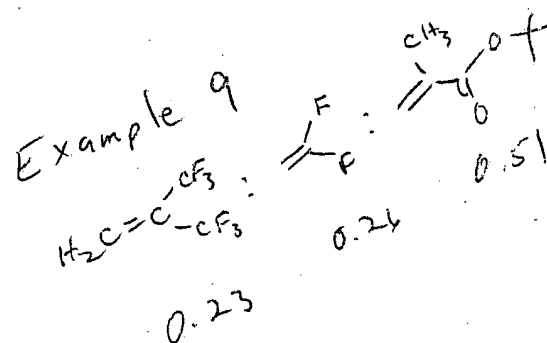 Example 9
H2C=C-CF3 CF3 : F F : CH3 O O
0.23 0.26 0.51